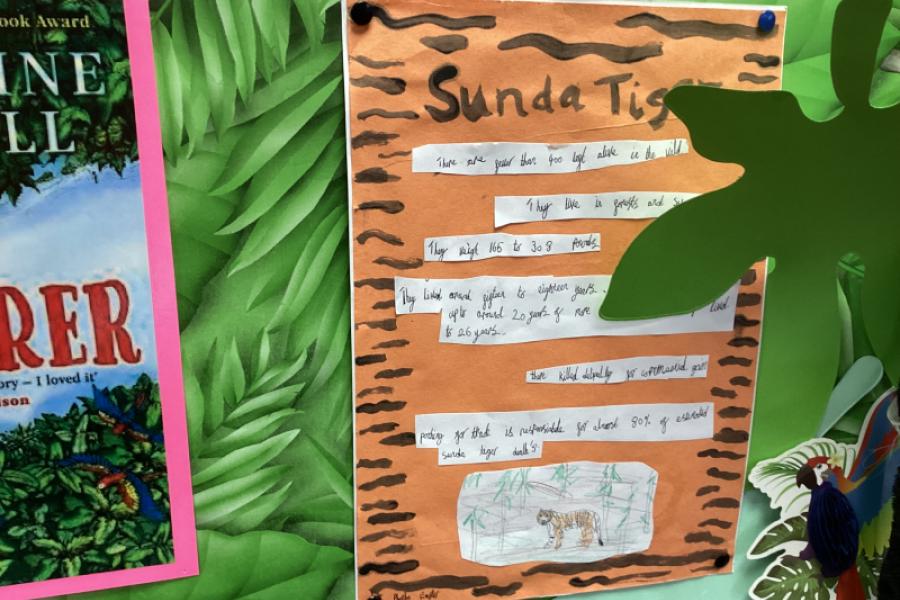 ook Award
INE
LL
RER
ory – I loved it'
son
Sunda Tiger
There are fewer than 400 left alive in the wild
They live in forests and
They weigh 165 to 308 pounds
They lived around fifteen to eighteen years.
up to around 20 years of more lived
to 26 years.
there killed illegally for commercial gain
poching for trade is responsible for almost 80% of estimated
sunda tiger death's